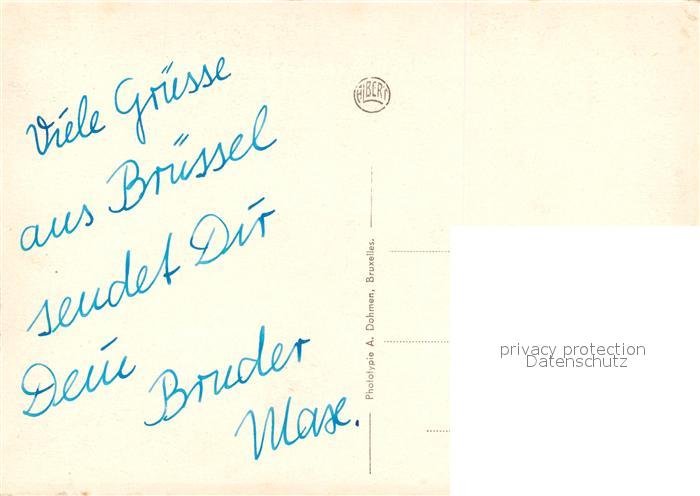 Viele Grüsse
aus Brüssel
sendet Dir
Dein Bruder
Max.
ALBERT
Phototypie A. Dohmen, Bruxelles.
privacy protection
Datenschutz